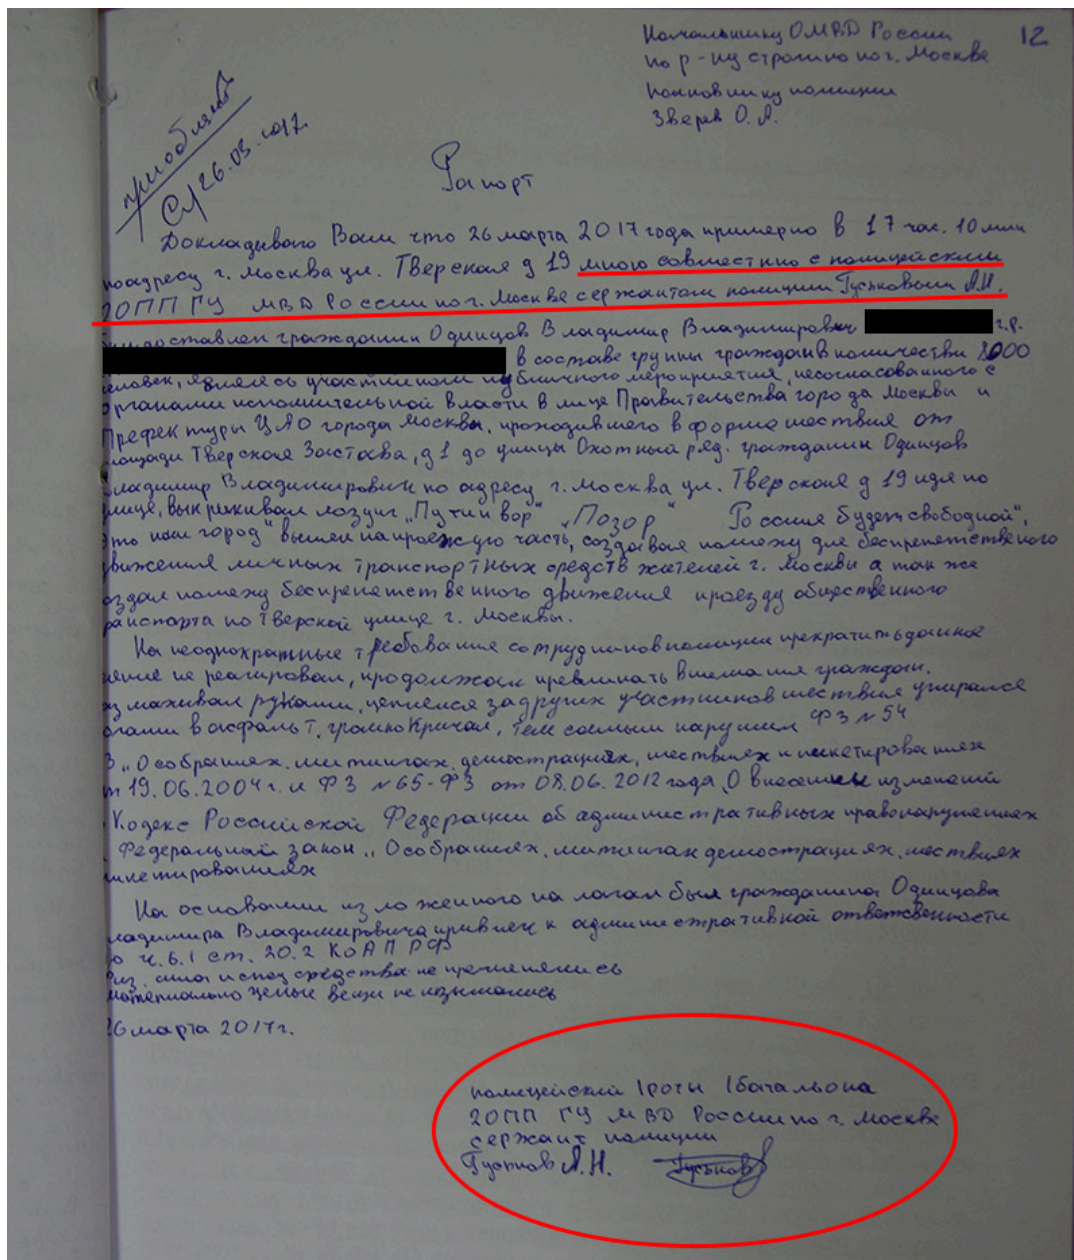 Начальнику ОМВД России
12
по р-ну строгино по г. Москве
полковнику полиции
Зверев О.А.
приобщить
26.03.2017.
Рапорт
Докладываю Вам что 26 марта 2017 года примерно в 17 час. 10 мин
по адресу г. Москва ул. Тверская д 19 мною совместно с полицейским
2ОПП ГУ МВД России по г. Москве сержантом полиции Гуськовым А.Н.
был доставлен гражданин Одинцов Владимир Владимирович г.р.
в составе группы граждан в количестве 8000
человек, являясь участником публичного мероприятия, несогласованного с
органами исполнительной власти в лице Правительства города Москвы и
Префектуры ЦАО города Москвы, проходившего в форме шествия от
площади Тверская Застава, д 1 до улицы Охотный ряд. гражданин Одинцов
ладимир Владимирович по адресу г. Москва ул. Тверская д 19 идя по
улице, выкрикивал лозунг „Путин вор" „Позор" Россия будет свободной",
это наш город" вышел на проезжую часть, создавая помеху для беспрепетственого
движения личных транспортных средств жителей г. Москвы а так же
оздал помеху беспрепетственного движения проезду общественного
ранспорта по Тверской улице г. Москвы.
На неоднократные требования сотрудников полиции прекратить данное
не реагировал, продолжал превликать внимания граждан.
размахивал руками, цеплялся за других участников шествия упирался
огами в асфальт, громко кричал, тем самым нарушил ФЗ №54
З „О собраниях, митингах, демострациях, шествиях и пикетированиях
т 19.06.2004г. и ФЗ №65-ФЗ от 08.06.2012 года „О внесении изменений
Кодекс Российской Федерации об административных правонарушениях
Федеральный закон „О собраниях, митингах демострациях, шествиях
пикетированиях
На основании изложенного полагал бы гражданина Одинцова
ладимира Владимировича привлеч к административной ответственности
по ч. 6.1 ст. 20.2 КоАП РФ
физ. сила и спец средства не применялись
материально ценые вещи не изымались
26 марта 2017г.
полицейский 1роты 1батальона
2ОПП ГУ МВД России по г. Москве
сержант полиции
Гуськов А.Н. Гуськов